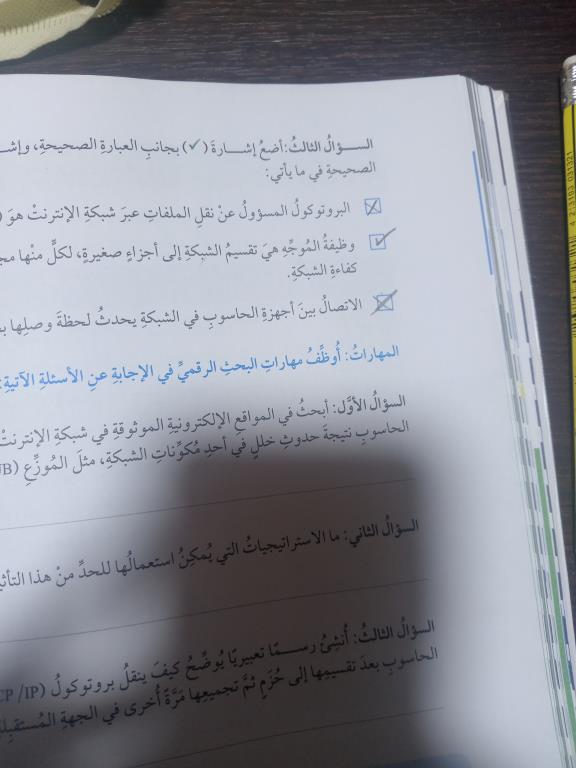 السؤالُ الثالثُ: أضعُ إشارةَ (✓) بجانبِ العبارةِ الصحيحةِ، وإشـ
الصحيحةِ في ما يأتي:
البروتوكولُ المسؤولُ عنْ نقلِ الملفاتِ عبرَ شبكةِ الإنترنتْ هوَ (
وظيفةُ المُوجِّهِ هيَ تقسيمُ الشبكةِ إلى أجزاءٍ صغيرةٍ، لكلٍّ منْها
كفاءةِ الشبكةِ.
الاتصالُ بينَ أجهزةِ الحاسوبِ في الشبكةِ يحدثُ لحظةَ وصلِها
المهاراتُ: أُوظِّفُ مهاراتِ البحثِ الرقميِّ في الإجابةِ عنِ الأسئلةِ الآتيةِ:
السؤالُ الأوَّلُ: أبحثُ في المواقعِ الإلكترونيةِ الموثوقةِ في شبكةِ الإنترنتْ
الحاسوبِ نتيجةَ حدوثِ خللٍ في أحدِ مُكوِّناتِ الشبكةِ، مثلَ المُوزِّعِ (UB
السؤالُ الثاني: ما الاستراتيجياتُ التي يُمكِنُ استعمالُها للحدِّ منْ هذا
السؤالُ الثالثُ: أُنشِئُ رسمًا تعبيريًا يُوضِّحُ كيفَ ينقلُ بروتوكولُ (CP /IP
الحاسوبِ بعدَ تقسيمِها إلى حُزَمٍ ثمَّ تجميعِها مَرَّةً أُخرى في الجهةِ المُستقبِلةِ
4 2 3183 031321